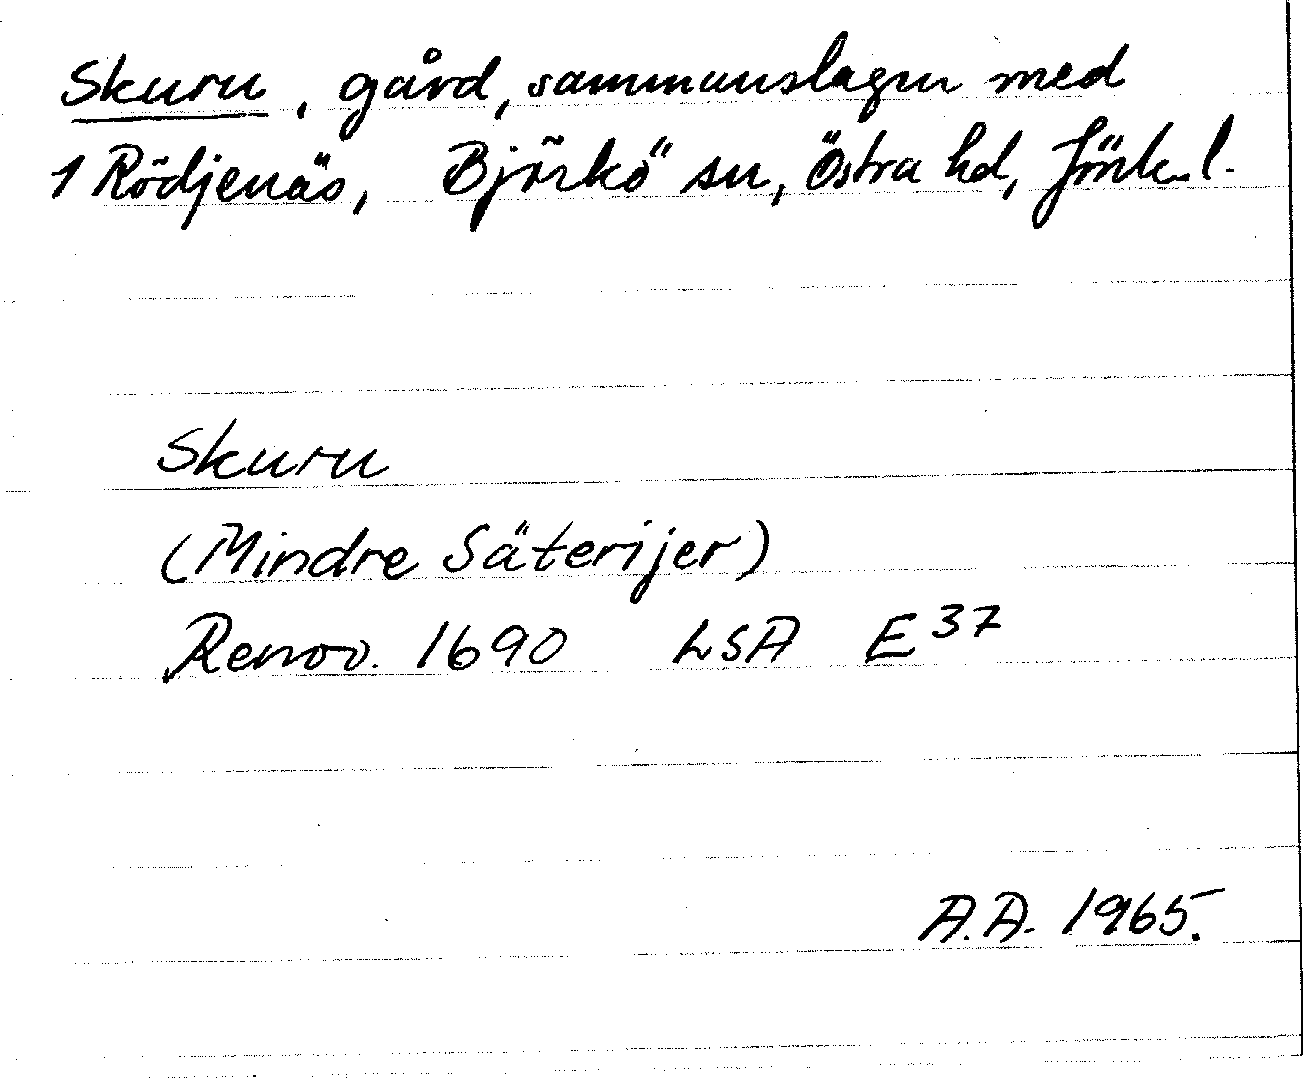 Skuru, gård, sammanslagen med
1 Rödjenäs, Björkö sn, Östra hd, Jönk. l.
Skuru
(Mindre Säterijer)
Renov. 1690 LSA E 37
A.A. 1965.